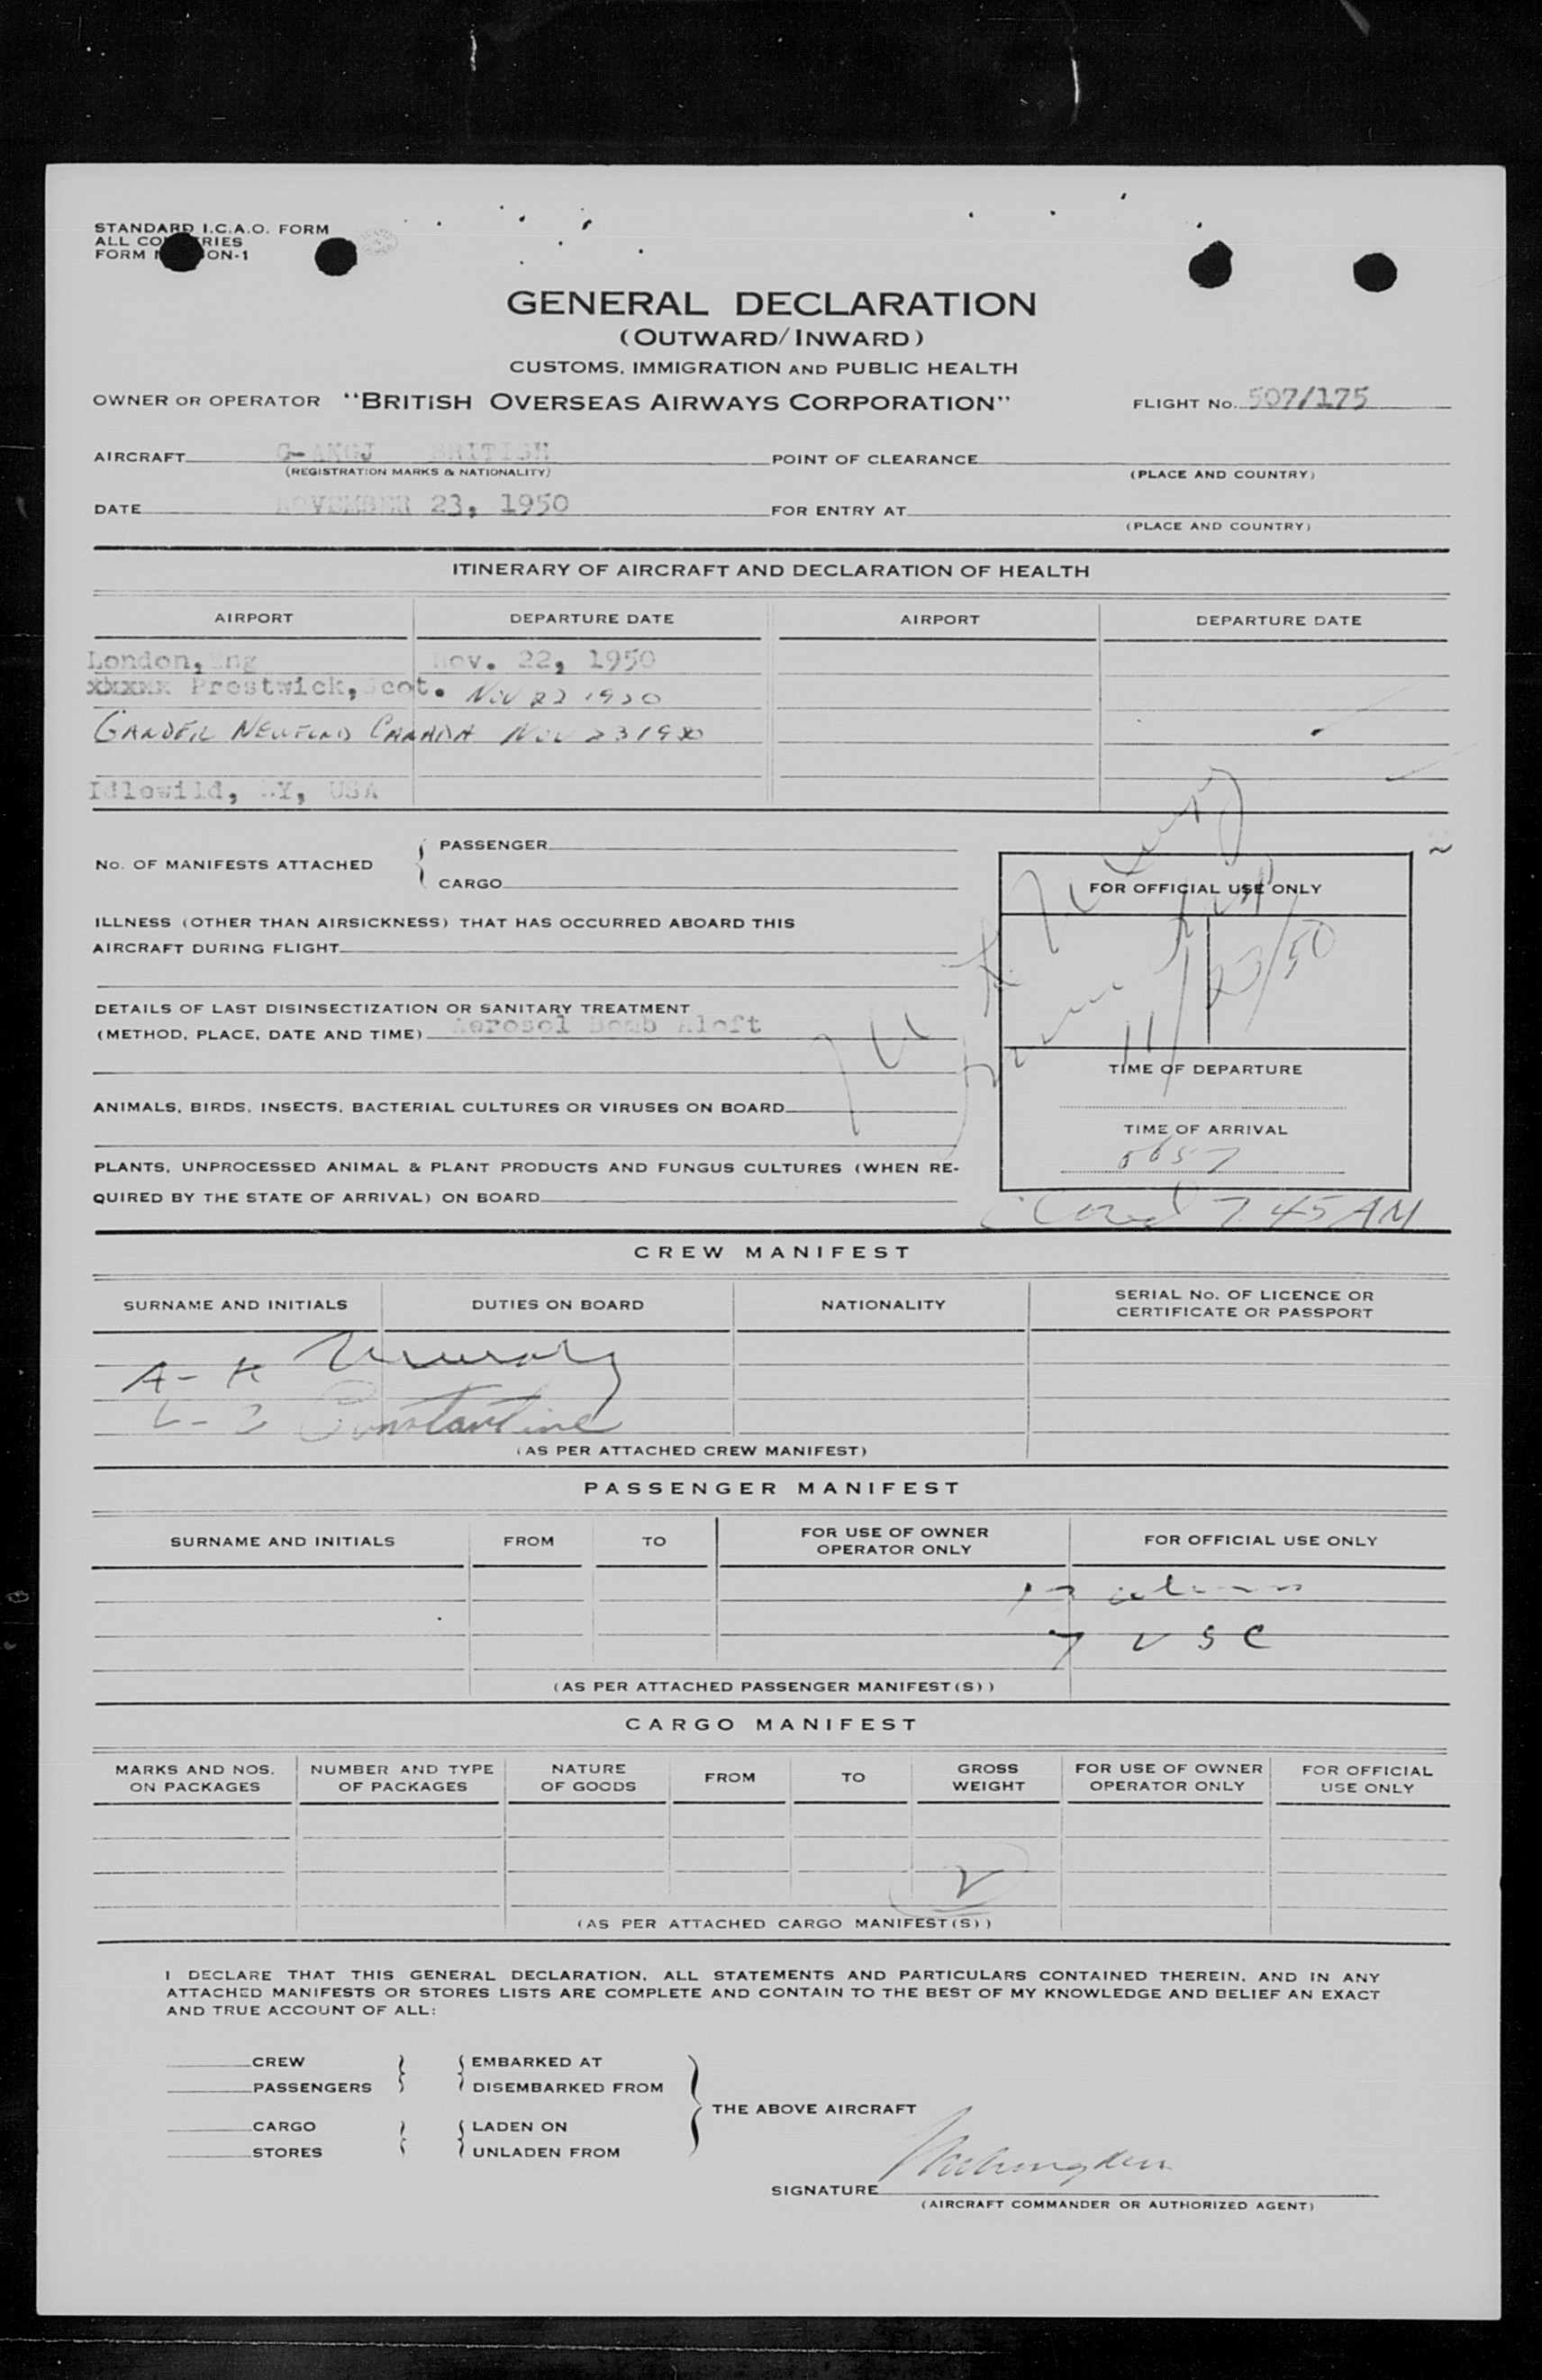 STANDARD I.C.A.O. FORM
ALL COUNTRIES
FORM ON-1
GENERAL DECLARATION
(OUTWARD/INWARD)
CUSTOMS, IMMIGRATION AND PUBLIC HEALTH
OWNER OR OPERATOR "BRITISH OVERSEAS AIRWAYS CORPORATION" FLIGHT No. 507/175
AIRCRAFT BRITISH POINT OF CLEARANCE
(REGISTRATION MARKS & NATIONALITY) (PLACE AND COUNTRY)
DATE NOVEMBER 23, 1950 FOR ENTRY AT
(PLACE AND COUNTRY)
ITINERARY OF AIRCRAFT AND DECLARATION OF HEALTH
AIRPORT DEPARTURE DATE AIRPORT DEPARTURE DATE
London, Eng Nov. 22, 1950
xxxxx Prestwick, Scot. Nov 22 1950
GANDER NEWFLND CANADA NOV 23 1950
Idlewild, NY, USA
No. OF MANIFESTS ATTACHED { PASSENGER
CARGO
FOR OFFICIAL USE ONLY
ILLNESS (OTHER THAN AIRSICKNESS) THAT HAS OCCURRED ABOARD THIS
AIRCRAFT DURING FLIGHT
11/23/50
DETAILS OF LAST DISINSECTIZATION OR SANITARY TREATMENT
(METHOD, PLACE, DATE AND TIME) Aerosol Bomb Aloft
TIME OF DEPARTURE
ANIMALS, BIRDS, INSECTS, BACTERIAL CULTURES OR VIRUSES ON BOARD
TIME OF ARRIVAL
0657
PLANTS, UNPROCESSED ANIMAL & PLANT PRODUCTS AND FUNGUS CULTURES (WHEN RE-
QUIRED BY THE STATE OF ARRIVAL) ON BOARD
7 45 AM
CREW MANIFEST
SURNAME AND INITIALS DUTIES ON BOARD NATIONALITY SERIAL No. OF LICENCE OR
CERTIFICATE OR PASSPORT
A-K
L-Z Constantine
(AS PER ATTACHED CREW MANIFEST)
PASSENGER MANIFEST
SURNAME AND INITIALS FROM TO FOR USE OF OWNER
OPERATOR ONLY FOR OFFICIAL USE ONLY
7 USC
(AS PER ATTACHED PASSENGER MANIFEST(S))
CARGO MANIFEST
MARKS AND NOS.
ON PACKAGES NUMBER AND TYPE
OF PACKAGES NATURE
OF GOODS FROM TO GROSS
WEIGHT FOR USE OF OWNER
OPERATOR ONLY FOR OFFICIAL
USE ONLY
(AS PER ATTACHED CARGO MANIFEST(S))
I DECLARE THAT THIS GENERAL DECLARATION, ALL STATEMENTS AND PARTICULARS CONTAINED THEREIN, AND IN ANY
ATTACHED MANIFESTS OR STORES LISTS ARE COMPLETE AND CONTAIN TO THE BEST OF MY KNOWLEDGE AND BELIEF AN EXACT
AND TRUE ACCOUNT OF ALL:
CREW } { EMBARKED AT
PASSENGERS } { DISEMBARKED FROM
THE ABOVE AIRCRAFT
CARGO } { LADEN ON
STORES } { UNLADEN FROM
SIGNATURE
(AIRCRAFT COMMANDER OR AUTHORIZED AGENT)